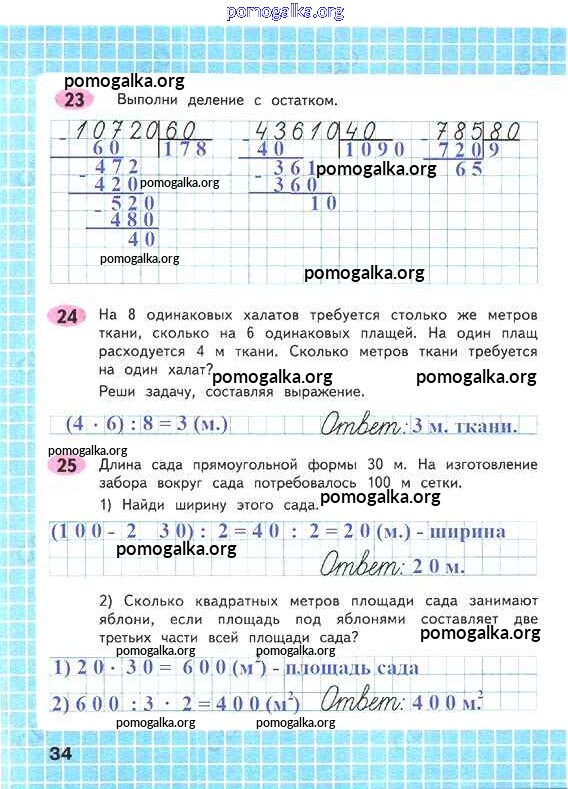 pomogalka.org
pomogalka.org
23 Выполни деление с остатком.
- 10720 60 - 43610 40 - 785 80
60 178 40 1090 720 9
- 472 - 361 pomogalka.org 65
- 420 pomogalka.org 360 pomogalka.org
- 520 10
480
40
pomogalka.org
pomogalka.org
24 На 8 одинаковых халатов требуется столько же метров
ткани, сколько на 6 одинаковых плащей. На один плащ
расходуется 4 м ткани. Сколько метров ткани требуется
на один халат?
pomogalka.org pomogalka.org
Реши задачу, составляя выражение.
(4 · 6) : 8 = 3 (м.) Ответ: 3 м. ткани.
pomogalka.org
25 Длина сада прямоугольной формы 30 м. На изготовление
забора вокруг сада потребовалось 100 м сетки.
1) Найди ширину этого сада. pomogalka.org
(100 - 2 30) : 2 = 40 : 2 = 20 (м.) - ширина
pomogalka.org
Ответ: 20 м.
2) Сколько квадратных метров площади сада занимают
яблони, если площадь под яблонями составляет две
третьих части всей площади сада? pomogalka.org
pomogalka.org pomogalka.org
1) 20 · 30 = 600 (м²) - площадь сада
2) 600 : 3 · 2 = 400 (м²) Ответ: 400 м.²
pomogalka.org pomogalka.org
34